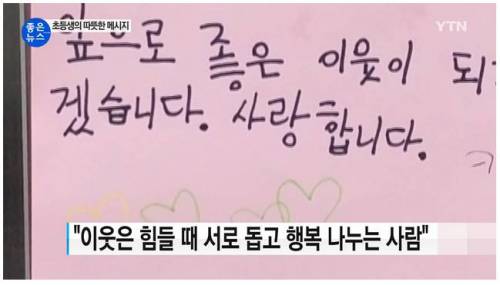 좋은 뉴스
초등생의 따뜻한 메시지
YTN
앞으로 좋은 이웃이 되
겠습니다. 사랑합니다.
"이웃은 힘들 때 서로 돕고 행복 나누는 사람"